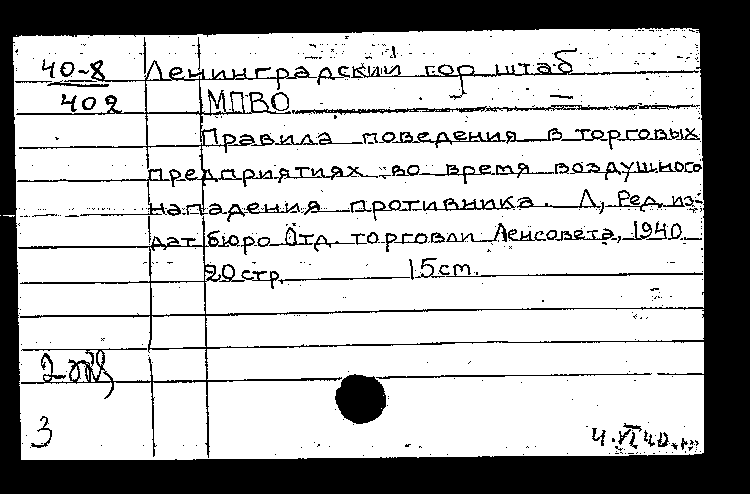 40-8 Ленинградский гор штаб
402 МПВО
Правила поведения в торговых
предприятиях во время воздушного
нападения противника. Л, Ред. из-
дат бюро Отд. торговли Ленсовета, 1940.
20 стр. 15 cm.
3
4.VI 40